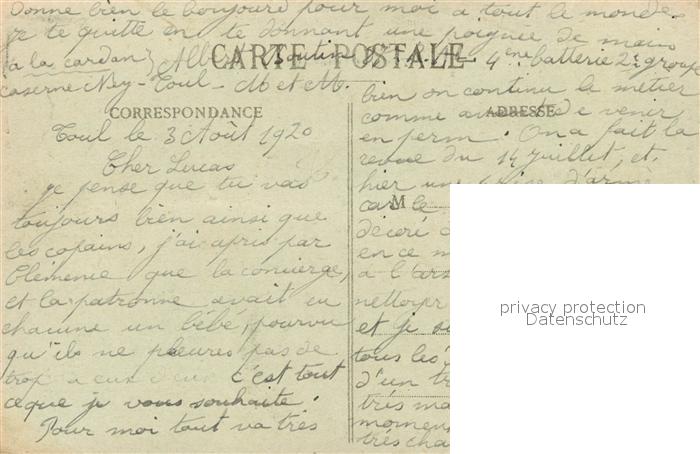 Donne bien le bonjour pour moi a tout le monde
je te quitte en te donnant une poignée de mains
(a la cardan) Albert
CARTE POSTALE
4ème batterie 2e groupe
caserne Ney - Toul - M et M.
CORRESPONDANCE
Toul le 3 Août 1920
Cher Lucas
je pense que tu vas
toujours bien ainsi que
les copains, j'ai apris par
Clémence que la concierge,
et la patronne avait eu
chacune un bébé, pourvu
qu'ils ne pleures pas de
trop a eux deux c'est tout
ce que je vous souhaite.
Pour moi tout va très
bien on continu le métier
ADRESSE
comme avant de venir
en perm. On a fait la
revue du 14 juillet, et
hier une prise d'arme
M
car le
décoré
en ce m
a l'ars
nettoyer
et je su
tous les
d'un tr
très ma
momen
très cha
privacy protection
Datenschutz